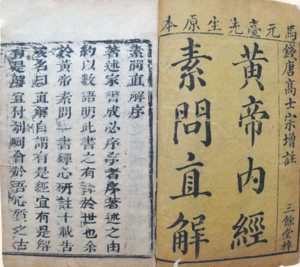 馬元臺先生原本
錢唐高士宗增註
黃帝內經
素問直解
三餘堂梓
素問直解序
著述家書成必序序者序著述之由
約以數語明此書之有功於世也余
於黃帝素問一書殫心研註十載告
成名曰直解自謂有是經宜有是解
有是解宜付剞劂